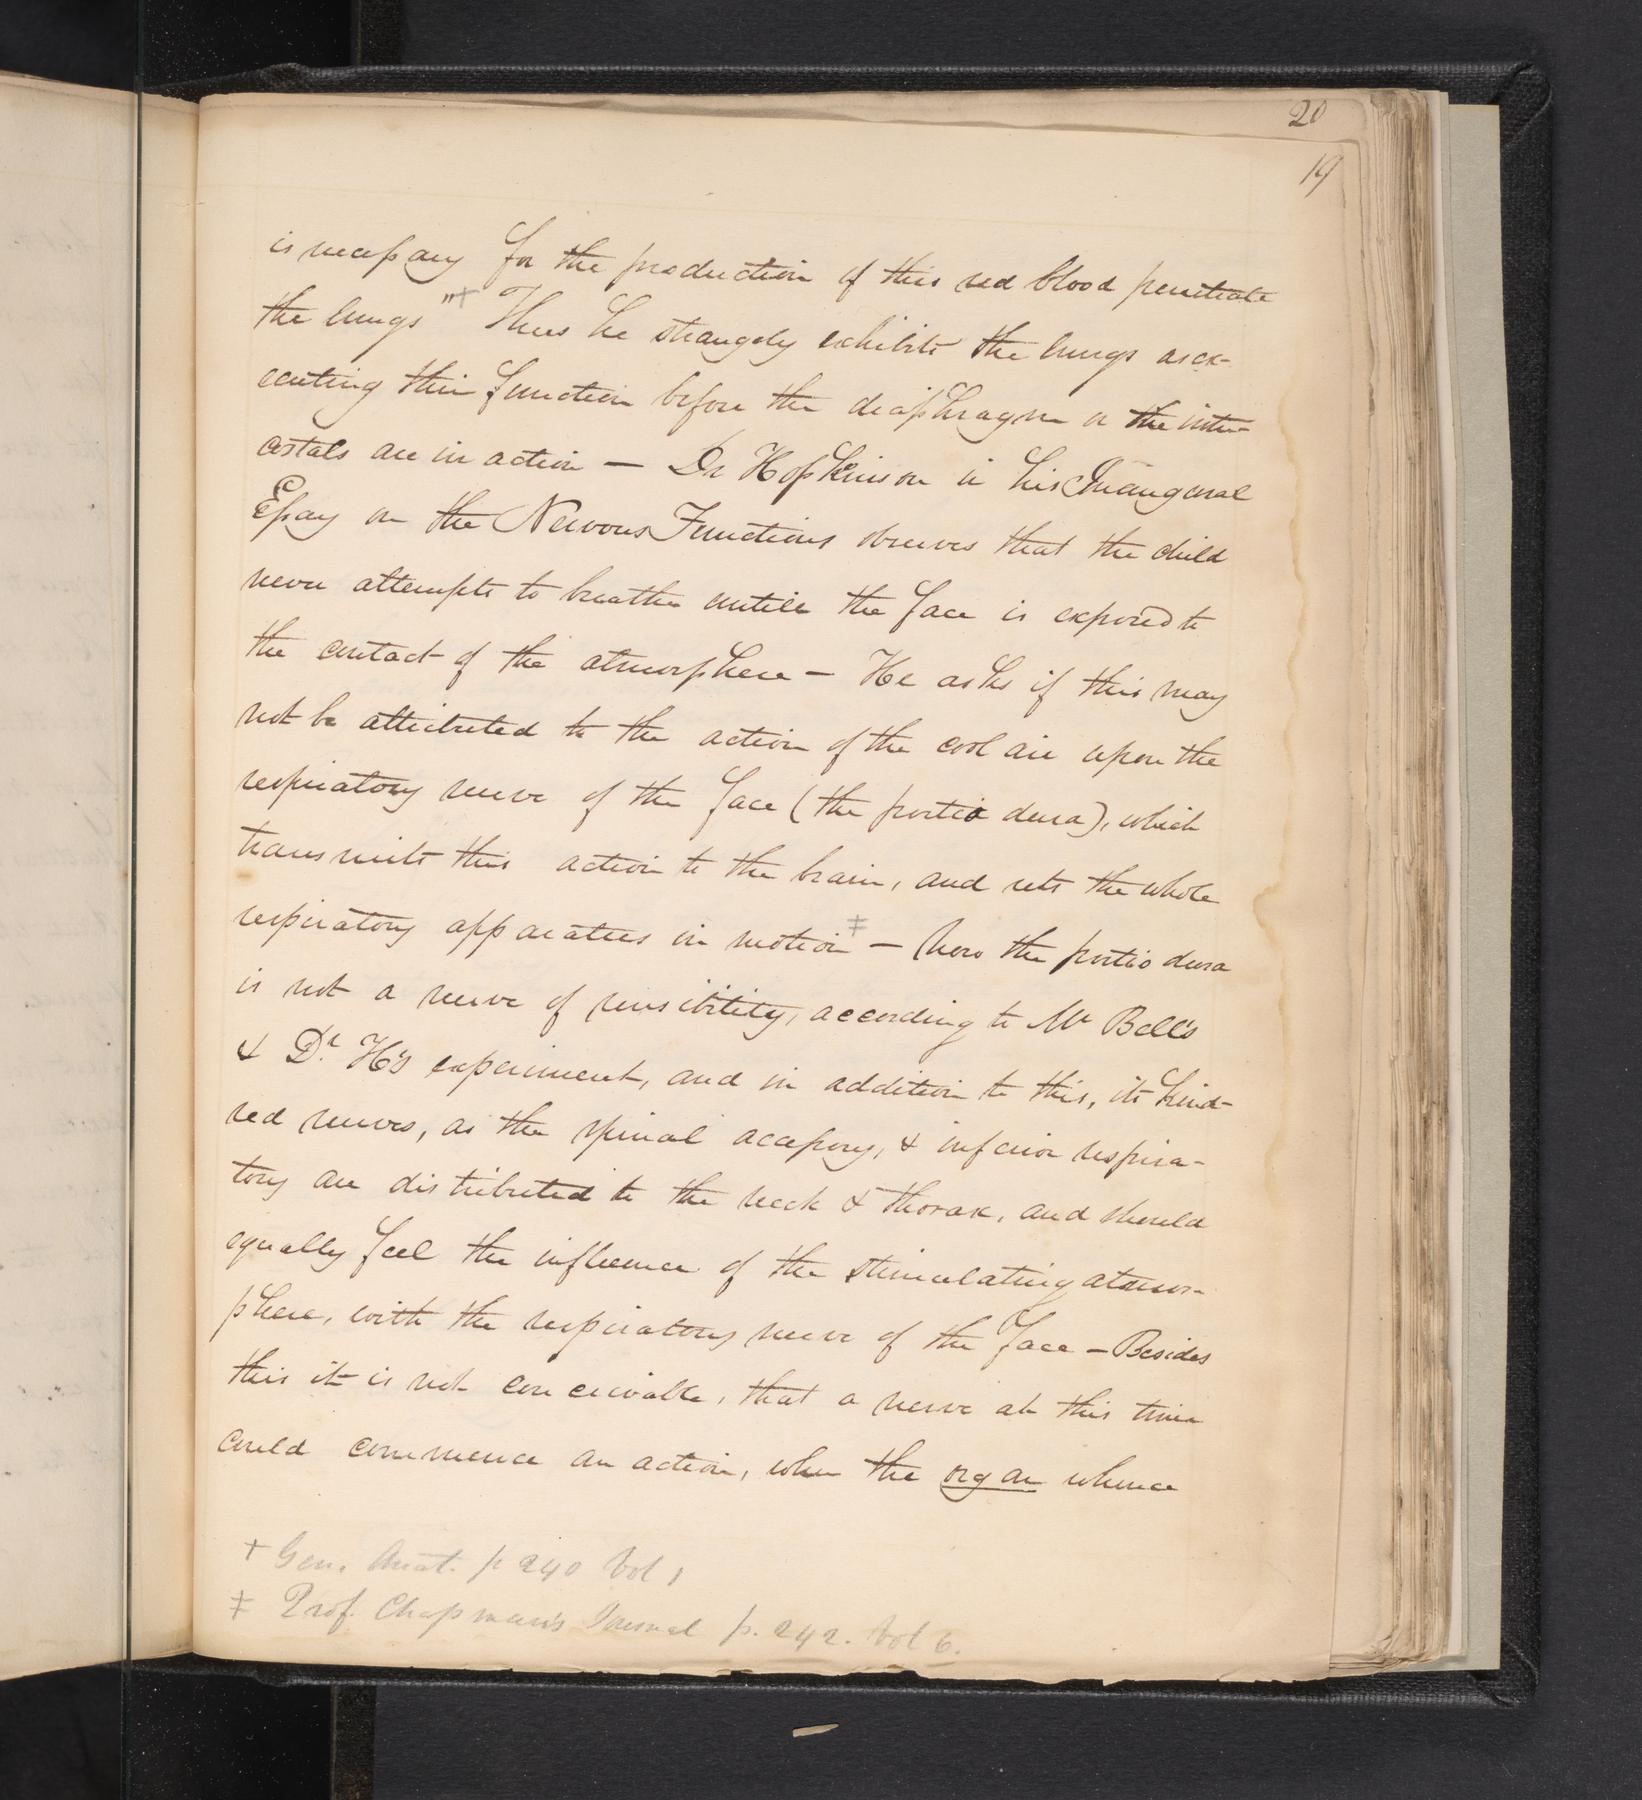 20
19
is necessary for the production of this red blood penetrate
the lungs"+ Thus he strangely exhibits the lungs as ex-
ecuting their function before the diaphragm or the inter-
costals are in action — Dr Hopkinson in his Inaugural
Essay on the Nervous Functions observes that the child
never attempts to breathe untill the face is exposed to
the contact of the atmosphere — He asks if this may
not be attributed to the action of the cool air upon the
respiratory nerve of the face (the portio dura), which
transmits this action to the brain, and sets the whole
respiratory apparatus in motion ‡ — Now the portio dura
is not a nerve of sensibility, according to Mr Bell's
& Dr. H's experiment, and in addition to this, its kind-
red nerves, as the spinal accessory, & inferior respira-
tory are distributed to the neck & thorax, and should
equally feel the influence of the stimulating atmos-
phere, with the respiratory nerve of the face — Besides
this it is not conceivable, that a nerve at this time
could commence an action, when the organ whence
+ Gen. Anat. p 240 Vol 1
‡ Prof. Chapman's Journal p. 242. Vol 6.